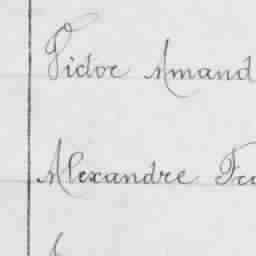 Victor Amand
Alexandre Fra